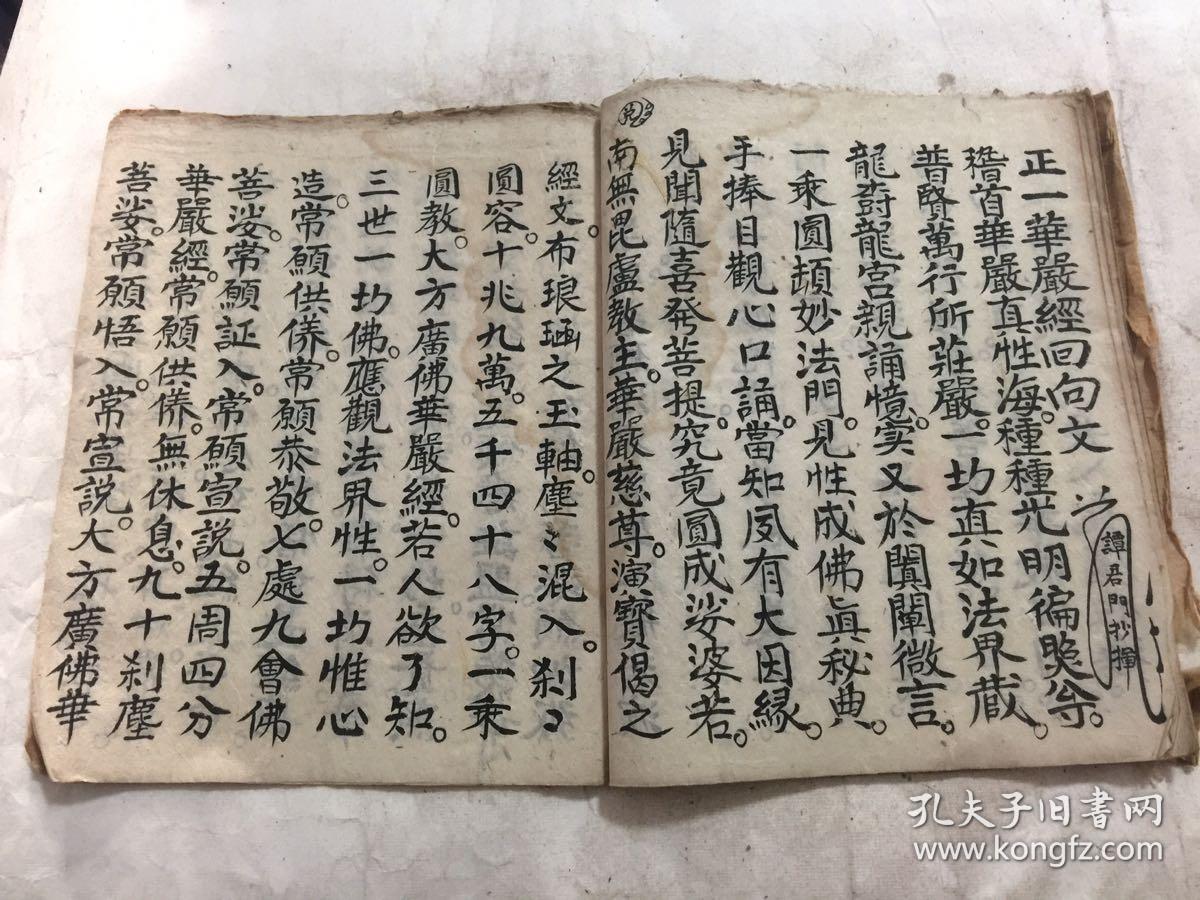 正一華嚴經回向文
譚君門抄揮
稽首華嚴真性海。種種光明徧照分。
普賢萬行所莊嚴。一切真如法界藏。
龍樹龍宮親誦憶。实又於闐闡微言。
一乘圓頓妙法門。見性成佛真秘典。
手捧目觀心口誦。當知夙有大因緣。
見聞隨喜發菩提。究竟圓成娑婆若。
南無毘盧教主。華嚴慈尊。演寶偈之
經文。布琅函之玉軸。塵〻混入。刹〻
圓容。十兆九萬。五千四十八字。一乘
圓教。大方廣佛華嚴經。若人欲了知。
三世一切佛。應觀法界性。一切惟心
造。常願供養。常願恭敬。七處九會佛
菩娑。常願証入。常願宣說。五周四分
華嚴經。常願供養。無休息。九十刹塵
菩娑。常願悟入。常宣説。大方廣佛華
孔夫子旧书网
www.kongfz.com